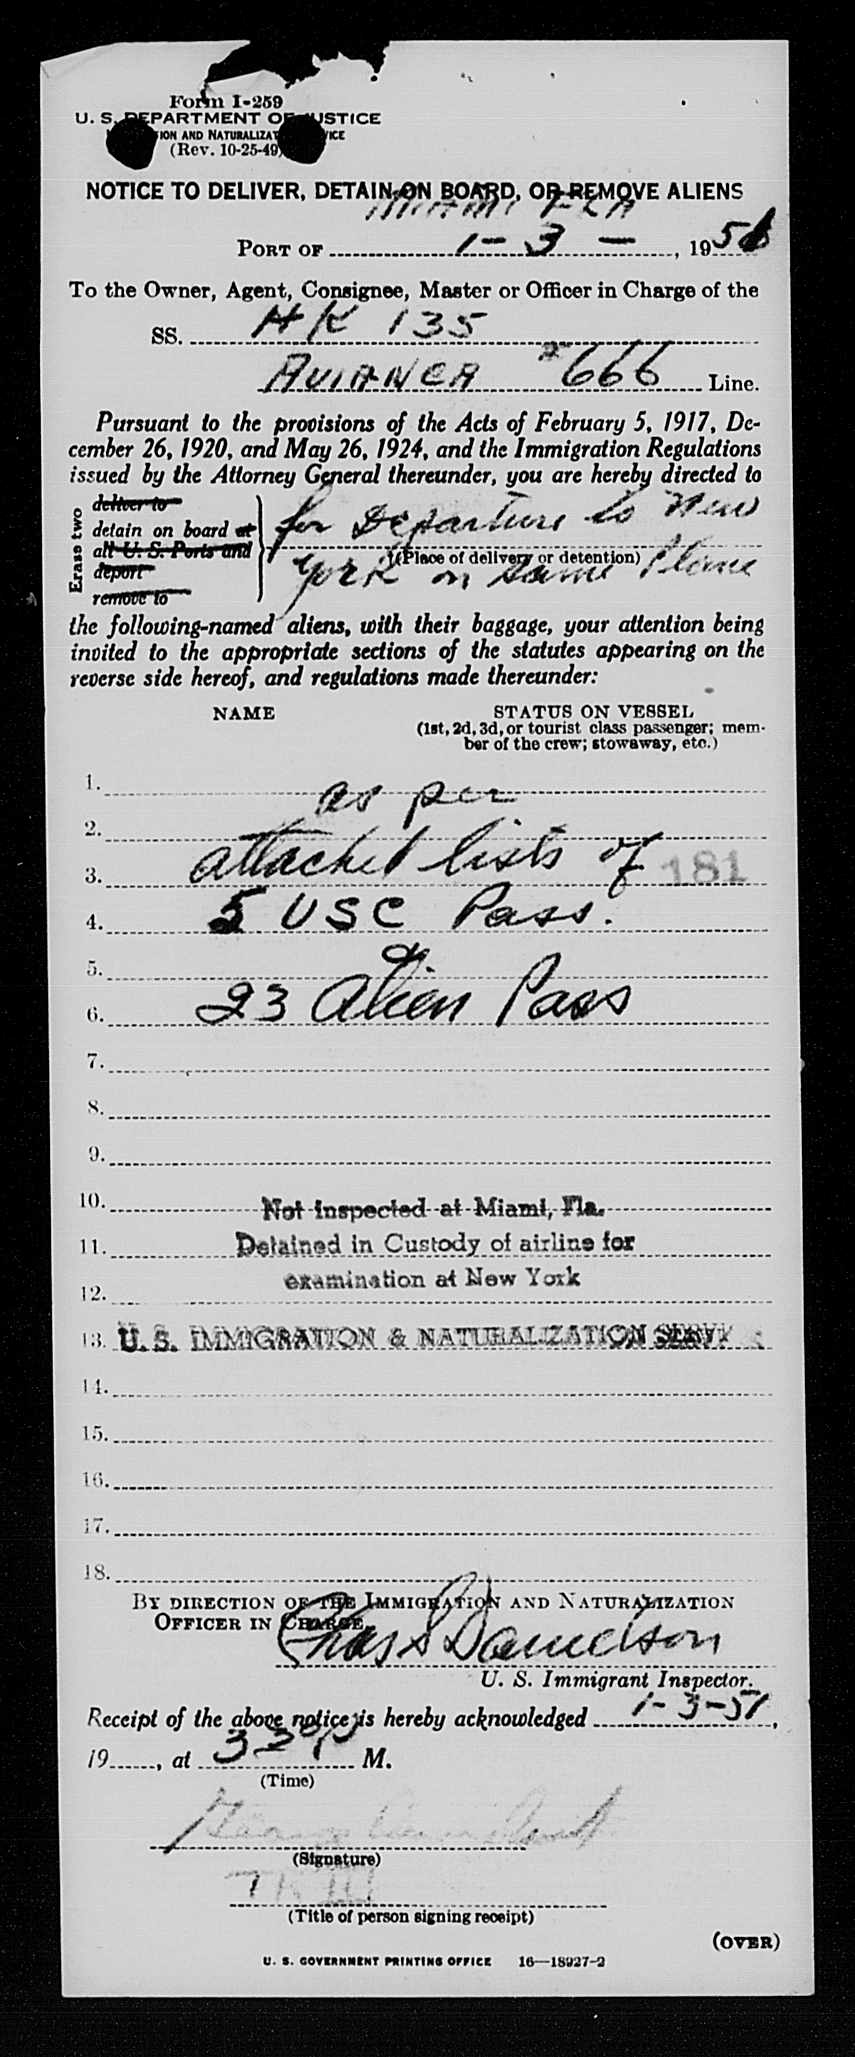 Form I-259
U. S. DEPARTMENT OF JUSTICE
ION AND NATURALIZAT ICE
(Rev. 10-25-49)
NOTICE TO DELIVER, DETAIN ON BOARD, OR REMOVE ALIENS
MIAMI FLA
PORT OF 1-3-, 1951
To the Owner, Agent, Consignee, Master or Officer in Charge of the
SS. HK 135
AVIANCA #666 Line.
Pursuant to the provisions of the Acts of February 5, 1917, De-
cember 26, 1920, and May 26, 1924, and the Immigration Regulations
issued by the Attorney General thereunder, you are hereby directed to
Erase two
deliver to
detain on board at
all U. S. Ports and
deport
remove to
for Departure to New
(Place of delivery or detention)
York on same Plane
the following-named aliens, with their baggage, your attention being
invited to the appropriate sections of the statutes appearing on the
reverse side hereof, and regulations made thereunder:
NAME STATUS ON VESSEL
(1st, 2d, 3d, or tourist class passenger; mem-
ber of the crew; stowaway, etc.)
1. as per
2.
3. attached lists of 181
4. 5 USC Pass.
5. &
6. 23 Alien Pass
7.
8.
9.
10. Not Inspected at Miami, Fla.
11. Detained in Custody of airline for
12. examination at New York
13. U. S. IMMIGRATION & NATURALIZATION SERV
14.
15.
16.
17.
18.
BY DIRECTION OF THE IMMIGRATION AND NATURALIZATION
OFFICER IN CHARGE
Chas S Davidson
U. S. Immigrant Inspector.
Receipt of the above notice is hereby acknowledged 1-3-51,
19......, at 329P M.
(Time)
(Signature)
(Title of person signing receipt)
(OVER)
U. S. GOVERNMENT PRINTING OFFICE 16—18927-2